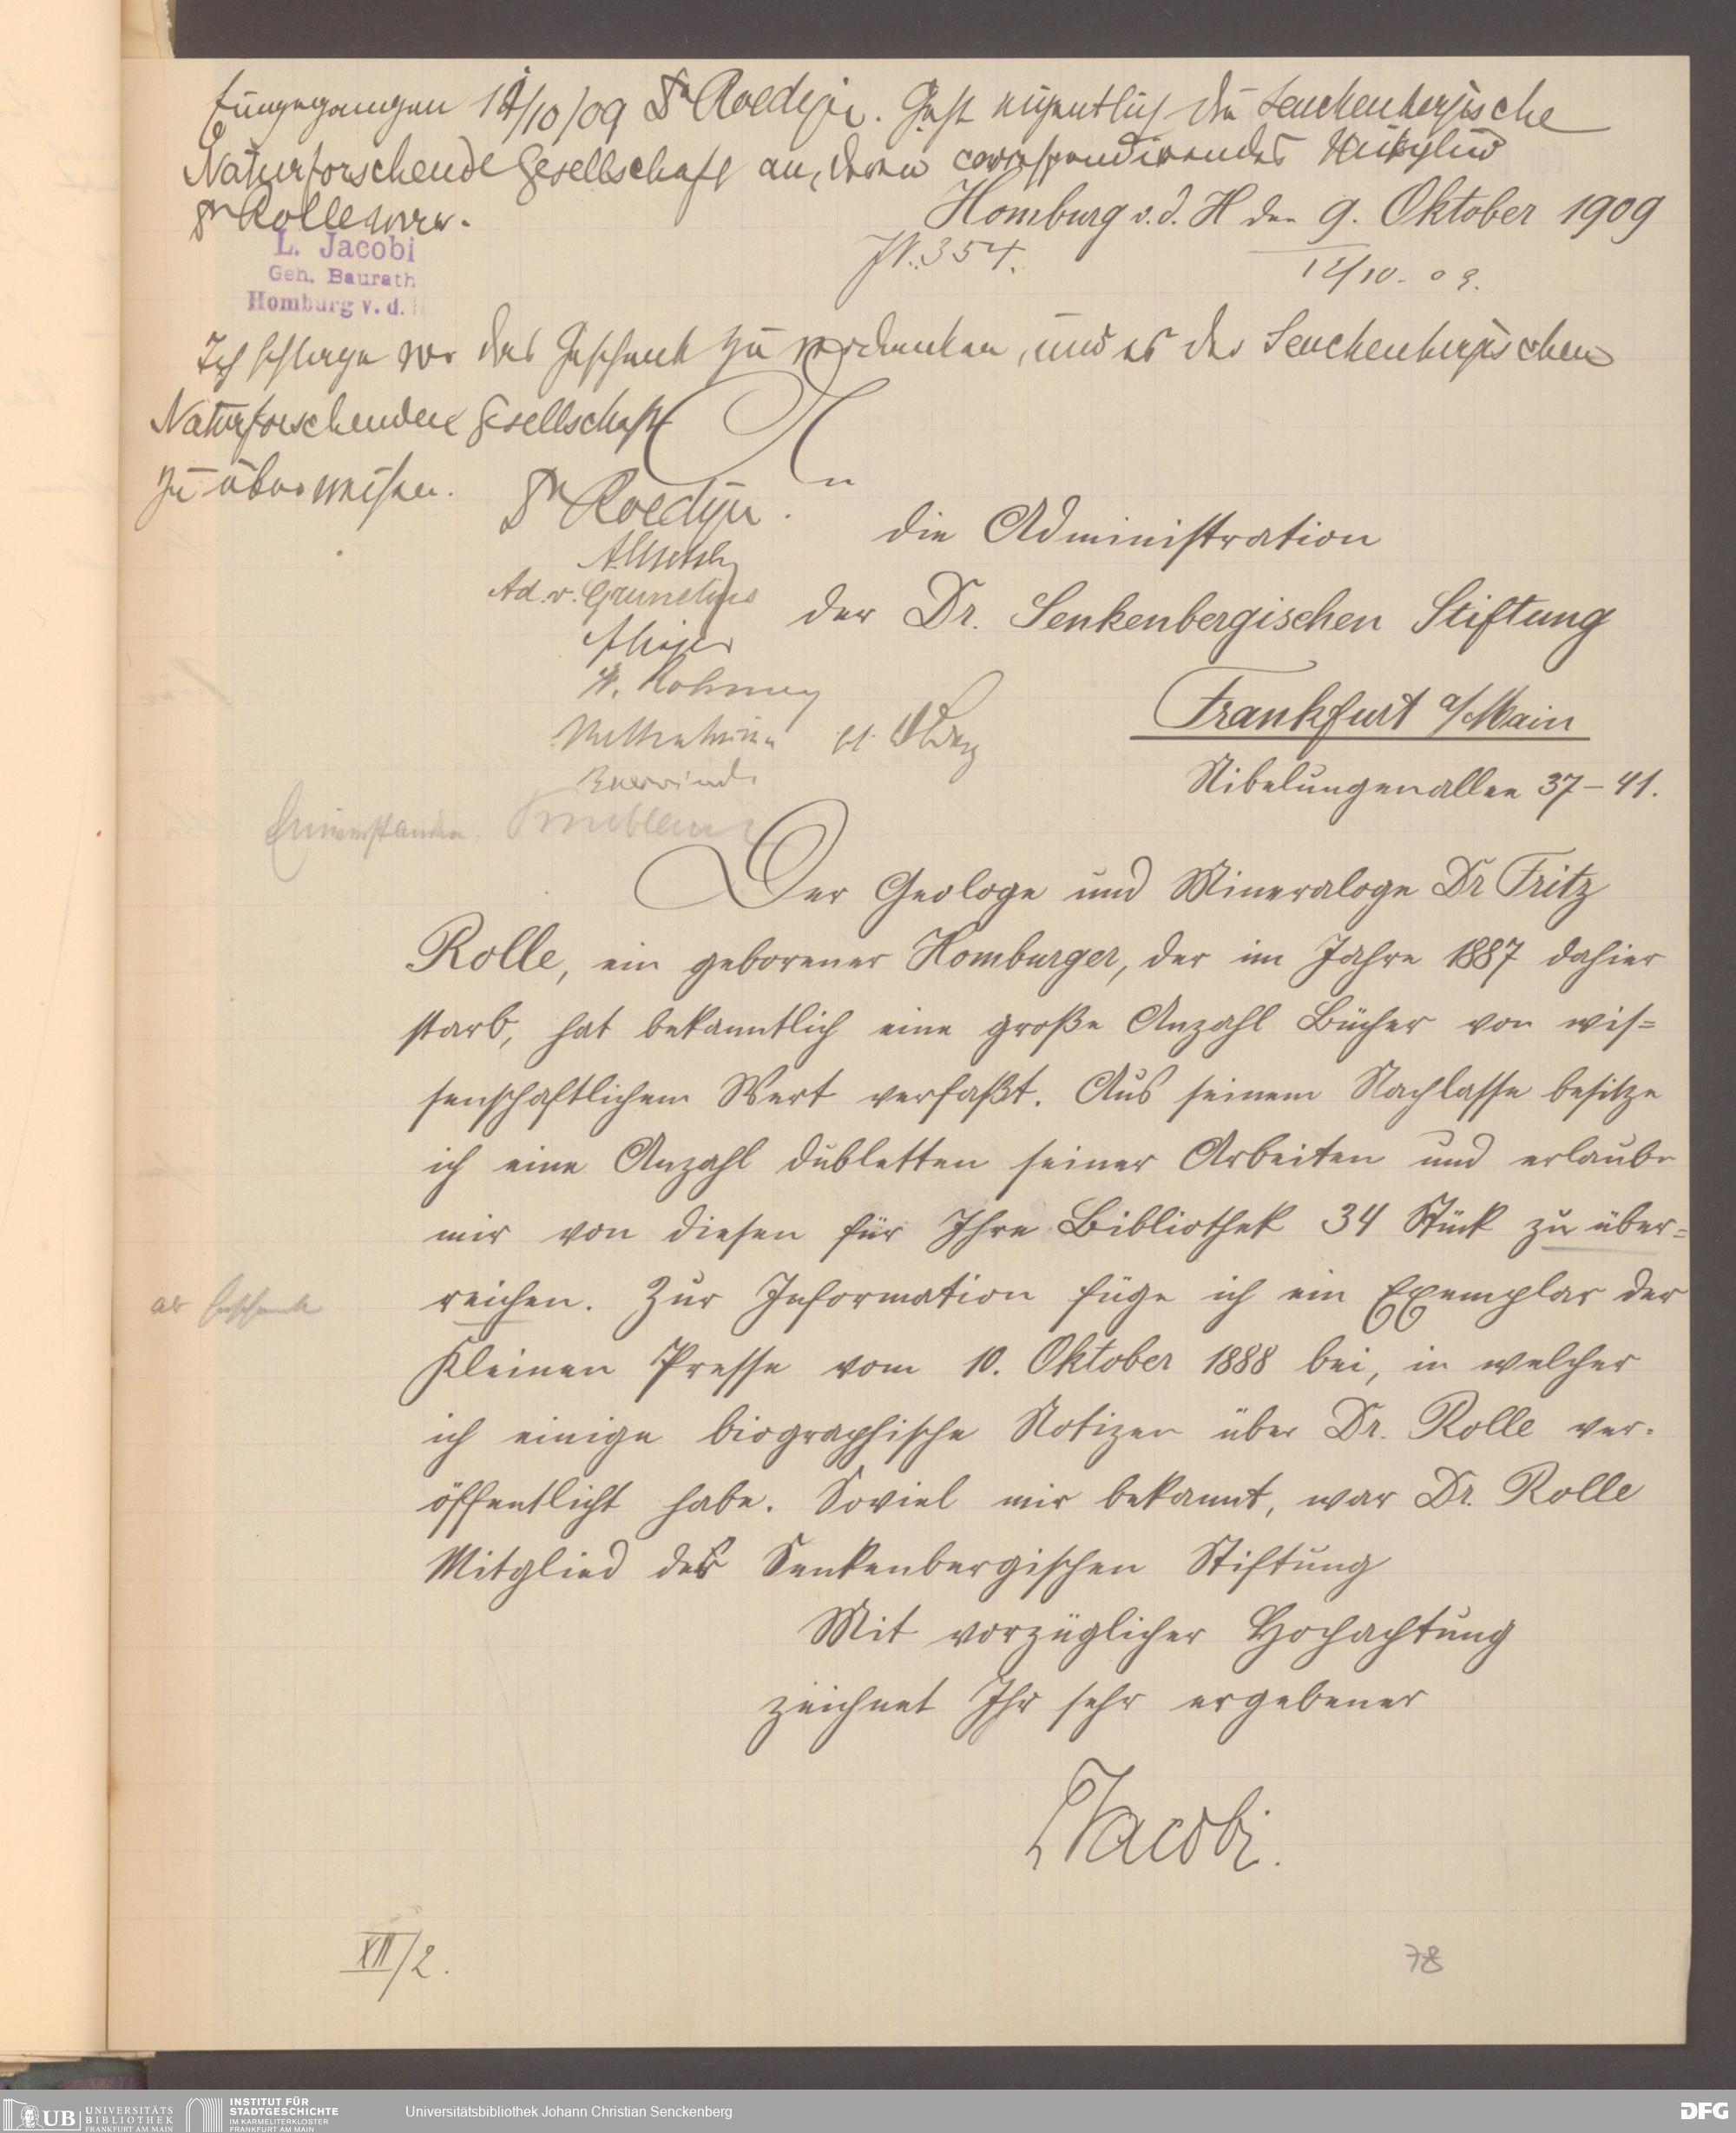 Eingegangen 12/10/09 Dr Roediger. Geht eigentlich die Senckenbergische
Naturforschende Gesellschaft an, deren correspondirendes Mitglied
Dr Rolle war.
Homburg v. d. H den 9. Oktober 1909
JN. 354.
12/10. 09.
L. Jacobi
Geh. Baurath
Homburg v. d. H
Ich schlage vor das Geschenk zu verdanken, und es der Senckenbergischen
Naturforschenden Gesellschaft
zu überweisen.
Dr Roediger.
An
die Administration
der Dr. Senkenbergischen Stiftung
Ad. v. Grunelius
Frankfurt a/Main
Nibelungenallee 37–41.
Einverstanden
Der Geologe und Mineraloge Dr Fritz
Rolle, ein geborener Homburger, der im Jahre 1887 dahier
starb, hat bekanntlich eine große Anzahl Bücher von wis=
senschaftlichem Wert verfaßt. Aus seinem Nachlasse besitze
ich eine Anzahl dubletten seiner Arbeiten und erlaube
mir von diesen für Ihre Bibliothek 34 Stück zu über=
reichen. Zur Information füge ich ein Exemplar der
als Geschenk
Kleinen Presse vom 10. Oktober 1888 bei, in welcher
ich einige biographische Notizen über Dr. Rolle ver-
öffentlicht habe. Soviel mir bekannt, war Dr. Rolle
Mitglied der Senkenbergischen Stiftung
Mit vorzüglicher Hochachtung
zeichnet Ihr sehr ergebener
L Jacobi.
XII/2.
78
UB UNIVERSITÄTS
BIBLIOTHEK
FRANKFURT AM MAIN
INSTITUT FÜR
STADTGESCHICHTE
IM KARMELITERKLOSTER
FRANKFURT AM MAIN
Universitätsbibliothek Johann Christian Senckenberg
DFG